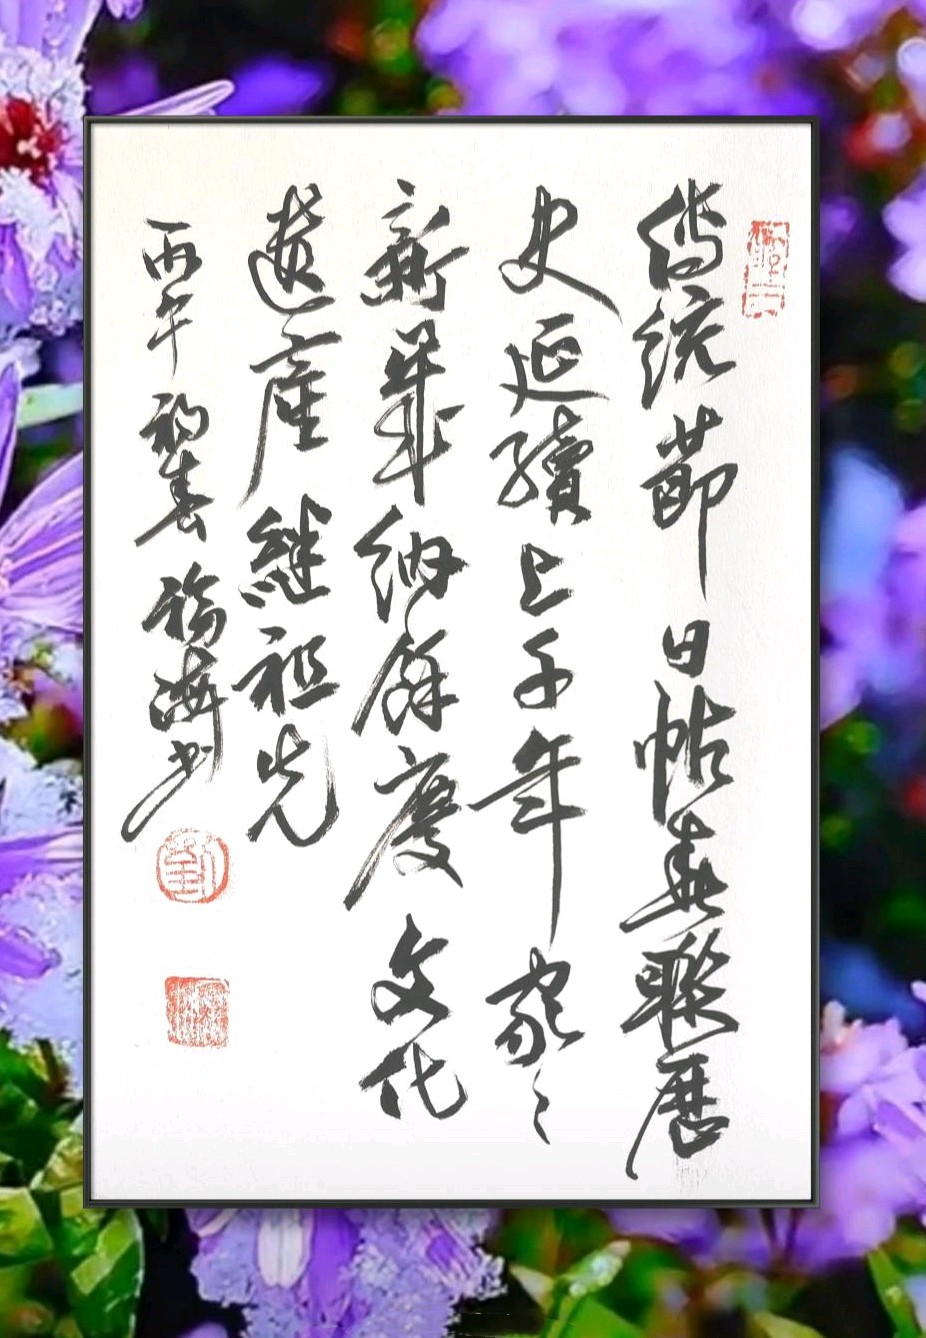 傳統節日帖春聯歷
史延續上千年家々
新年納餘慶文化
遺產继祖先
丙午初春福海书